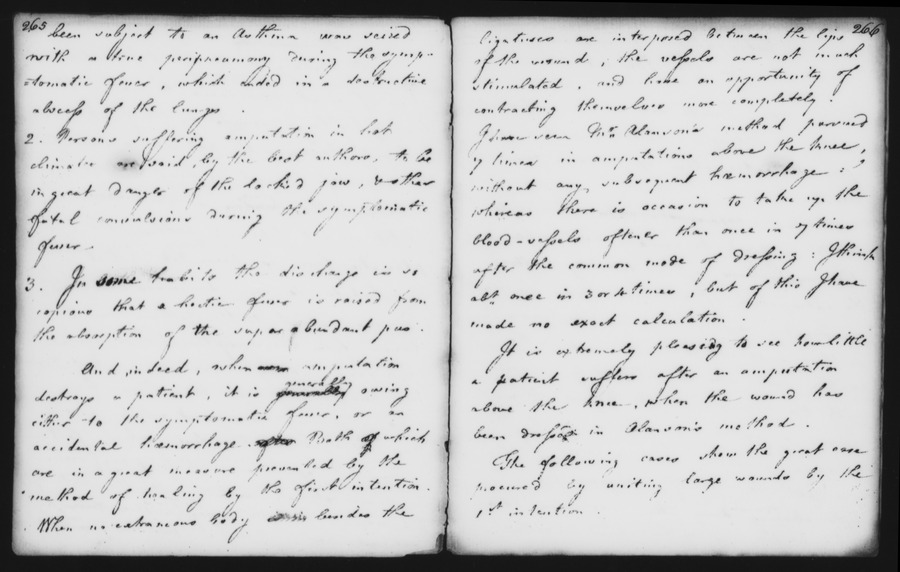 265
been subject to an Asthma was seized
with a true peripneumony during the symp-
-tomatic fever, which ended in a destructive
abscess of the lungs.
2. Persons suffering amputation in hot
climates are said, by the best authors, to be
in great danger of the locked jaw, & other
fatal convulsions during the symptomatic
fever.
3. In some habits the discharge is so
copious that a hectic fever is raised from
the absorption of the superabundant pus.
And indeed, when amputation
destroys a patient, it is generally owing
either to the symptomatic fever, or an
accidental hæmorrhage. Both of which
are in a great measure prevented by the
method of healing by the first intention.
When no extraneous body besides the
266
ligatures are interposed between the lips
of the wound, the vessels are not much
stimulated, and have an opportunity of
contracting themselves more completely.
I have seen Mr. Alanson's method pursued
7 times in amputations above the knee,
without any subsequent hæmorrhage:
whereas there is occasion to take up the
blood-vessels oftener than once in 7 times
after the common mode of dressing: I think
abt. once in 3 or 4 times, but of this I have
made no exact calculation.
It is extremely pleasing to see how little
a patient suffers after an amputation
above the knee, when the wound has
been dressed in Alanson's method.
The following cases show the great ease
procured by uniting large wounds by the
1st intention.